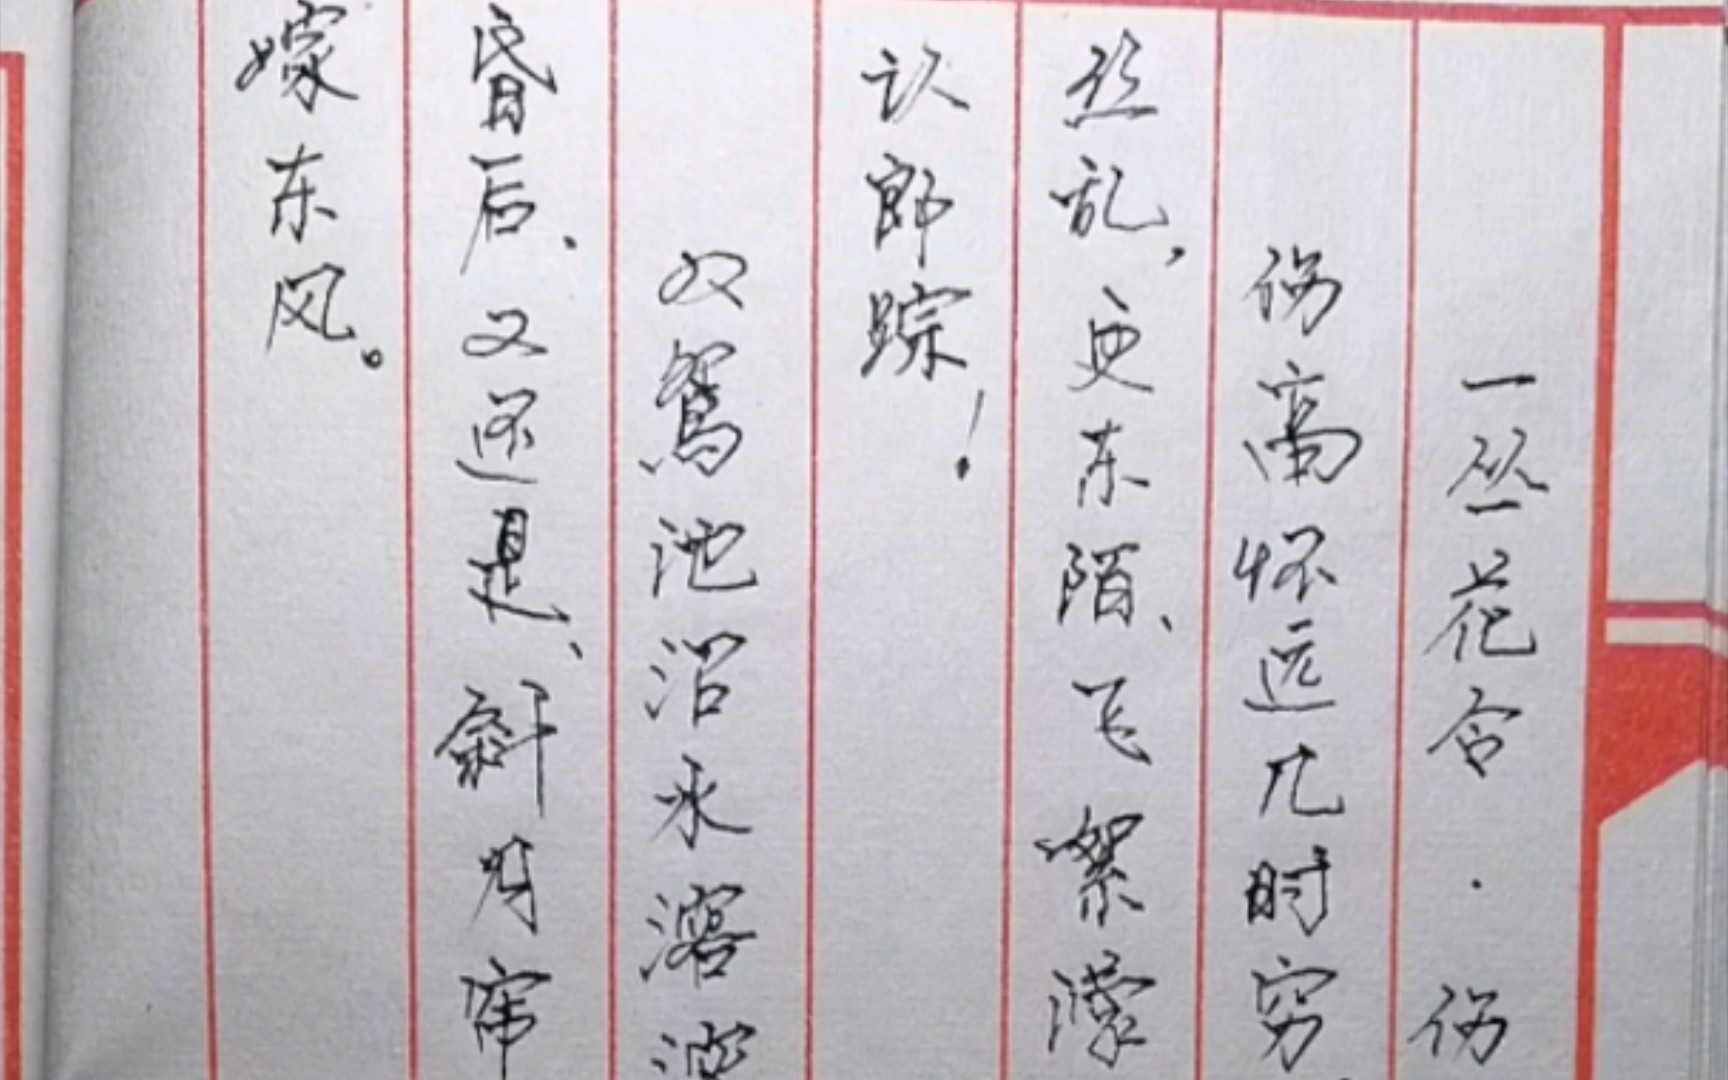 一丛花令·伤
伤高怀远几时穷
丝乱，更东陌、飞絮濛
认郎踪！
双鸳池沼水溶溶
昏后、又还是、斜月帘
嫁东风。